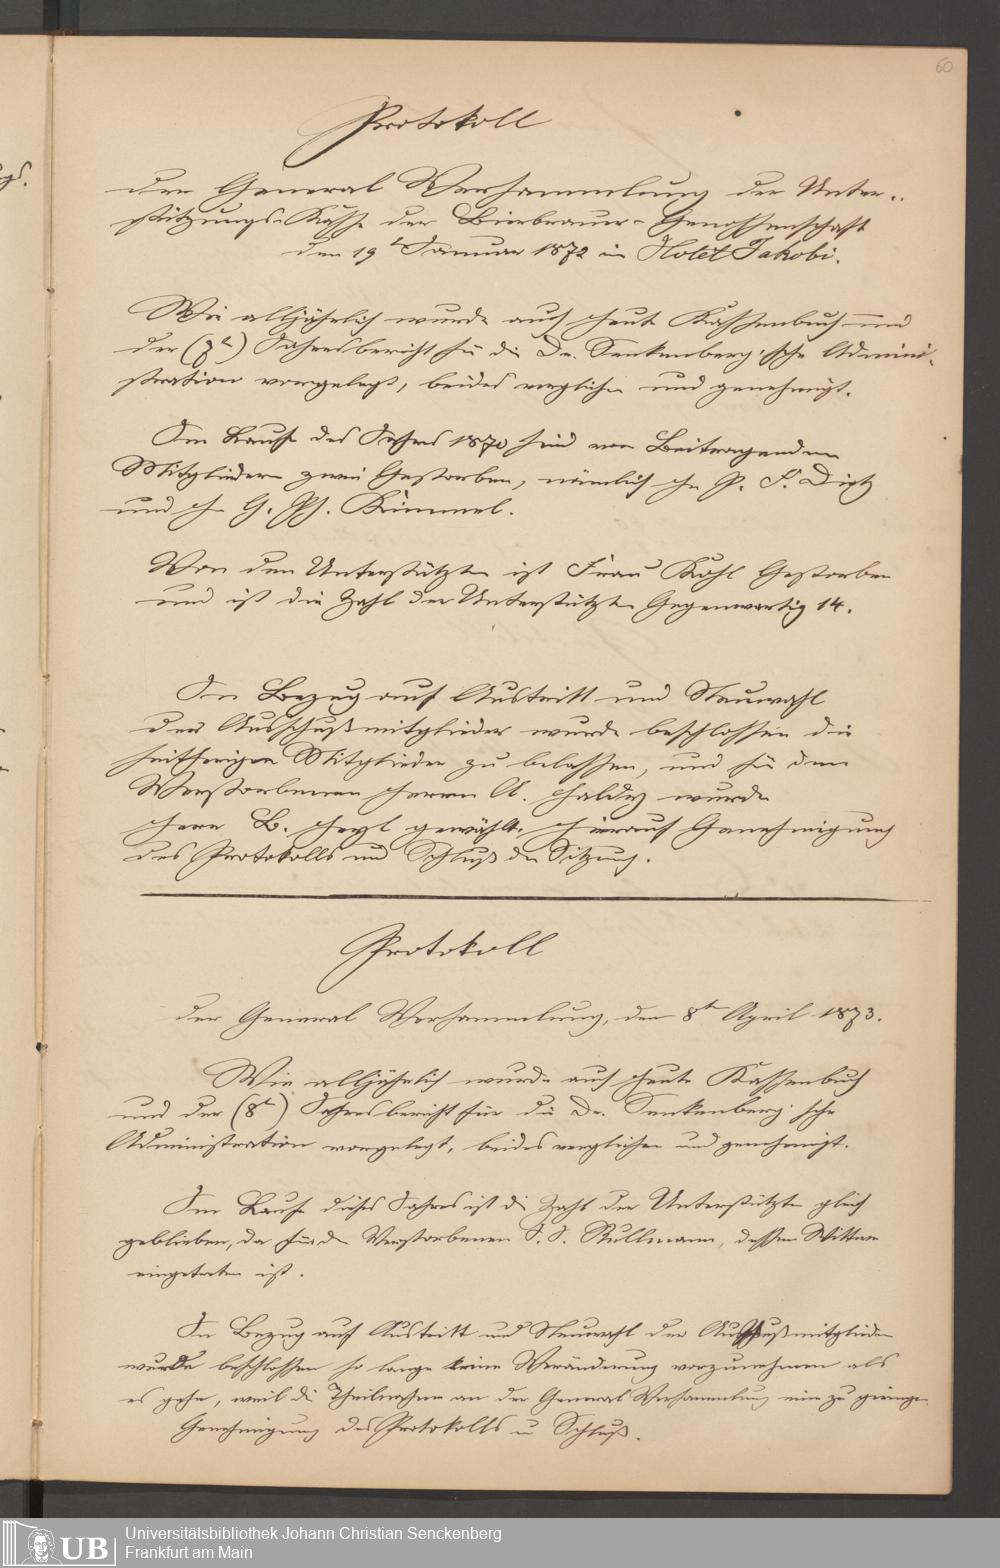 60
Protokoll
der General Versammlung der Unter-
stützungs-Kasse der Bierbrauer-Genossenschaft
den 19t Januar 1872 in Hotel Jakobi.
Wie alljährlich wurde auch heute Kassenbuch und
der (7te) Jahresbericht für die Dr. Senkenberg'sche Admini-
stration vorgelegt, beides verglichen und genehmigt.
Im Laufe des Jahres 1870 sind von Beitragenden
Mitgliedern zwei Gestorben, nämlich H P. F. Dietz
und H G. Ph. Kimmel.
Von den Unterstützten ist Frau Kohl Gestorben
und ist die Zahl der Unterstützte Gegenwartig 14.
In Bezug auf Austritt und Neuwahl
der Ausschußmitglieder wurde beschlossen die
seitherigen Mitglieder zu belassen, und für den
Verstorbenen Herrn A. Haldy wurde
Herr B. Heyl gewählt, hierauf Genehmigung
des Protokolls und Schluß der Sitzung.
Protokoll
der General Versammlung, den 8te April 1873.
Wie alljährlich wurde auch heute Kassenbuch
und der (8te) Jahresbericht für die Dr. Senkenberg'sche
Administration vorgelegt, beides verglichen und genehmigt.
Im Laufe dieses Jahres ist die Zahl der Unterstützte gleich
geblieben, da für den Verstorbenen J. J. Rullmann, dessen Wittwe
eingetreten ist.
In Bezug auf Austritt und Neuwahl der Ausschußmitglieder
wurde beschlossen so lange keine Veränderung vorzunehmen als
es gehe, weil die Theilnahme an der General Versammlung eine zu geringe.
Genehmigung des Protokolls u Schluß.
UB
Universitätsbibliothek Johann Christian Senckenberg
Frankfurt am Main